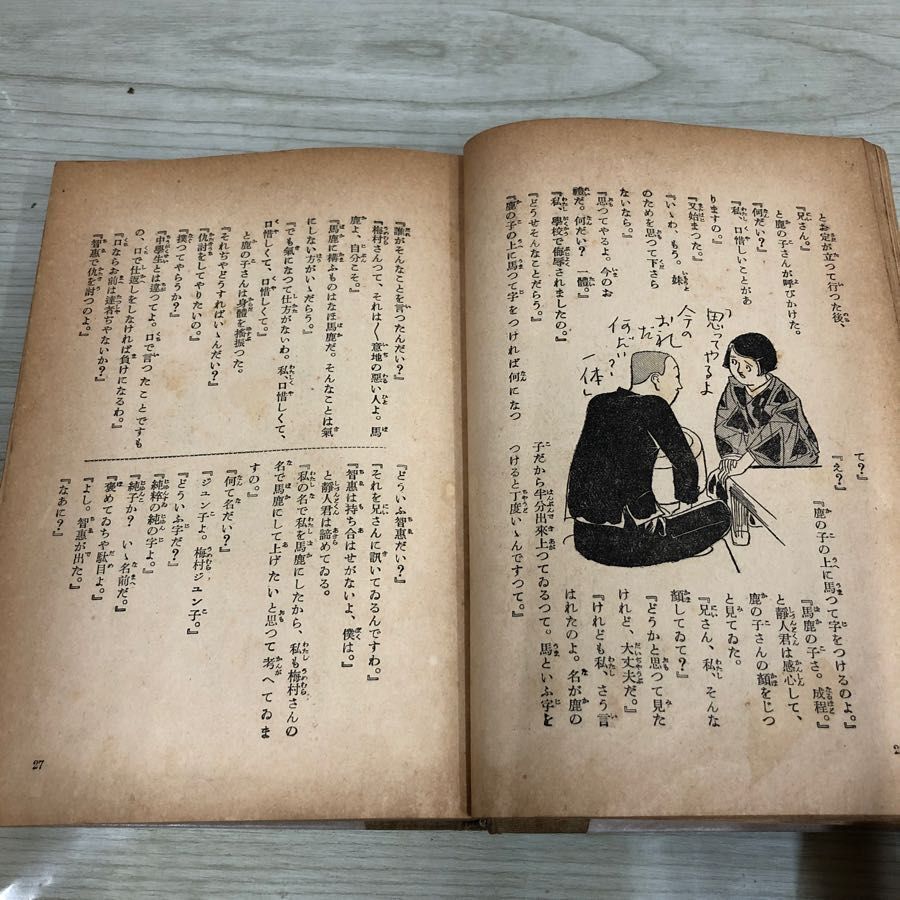 とお定が立つて行つた後、
『兄さん。』
と鹿の子さんが呼びかけた。
『何だい？』
『私、口惜しいことがあ
ります。』
『又始まつた。』
『いゝわ、もう。妹
のためを思つて下さら
ないなら。』
『思つてやるよ、今のお
禮だ。何だい？　一體。』
『私、學校で侮辱されましたの。』
『どうせそんなことだらう。』
『鹿の子の上に馬つて字をつければ何になつ
「思ってやるよ
今の
おれ
だ
何だい？
一体」
て？』
『え？』
『鹿の子の上に馬つて字をつけるのよ。』
『馬鹿の子さ。成程。』
と靜人君は感心して、
鹿の子さんの顏をじつ
と見てゐた。
『兄さん、私、そんな
顏してゐて？』
『どうかと思つて見た
けれど、大丈夫だ。』
『けれども私、さう言
はれたのよ。名が鹿の
子だから半分出來上つてゐるつて。馬といふ字を
つけると丁度いゝんですつて。』
『誰がそんなことを言つたんだい？』
『梅村さんつて、それは〱意地の惡い人よ。馬
鹿よ、自分こそ。』
『馬鹿に構ふものはなほ馬鹿だ。そんなことは氣
にしない方がいゝだらう。』
『でも氣になつて仕方がないわ。私、口惜しくて、
口惜しくて、口惜しくて。』
と鹿の子さんは身體を搖振つた。
『それぢやどうすればいゝんだい？』
『仇討をしてやりたいの。』
『撲つてやらうか？』
『中學生とは違つてよ。口で言つたことですも
の、口で仕返しをしなければ負けになるわ。』
『口ならお前は達者ぢやないか？』
『智惠で仇を討つのよ。』
『どういふ智惠だい？』
『それを兄さんに訊いてゐるんですわ。』
『智惠は持ち合はせがないよ、僕は。』
と靜人君は諦めてゐる。
『私の名で私を馬鹿にしたから、私も梅村さんの
名で馬鹿にして上げたいと思つて考へてゐま
すの。』
『何て名だい？』
『ジュン子よ。梅村ジュン子。』
『どういふ字だ？』
『純粹の純の字よ。』
『純子か？　いゝ名前だ。』
『褒めてゐちや駄目よ。』
『よし。智惠が出た。』
『なあに？』
27